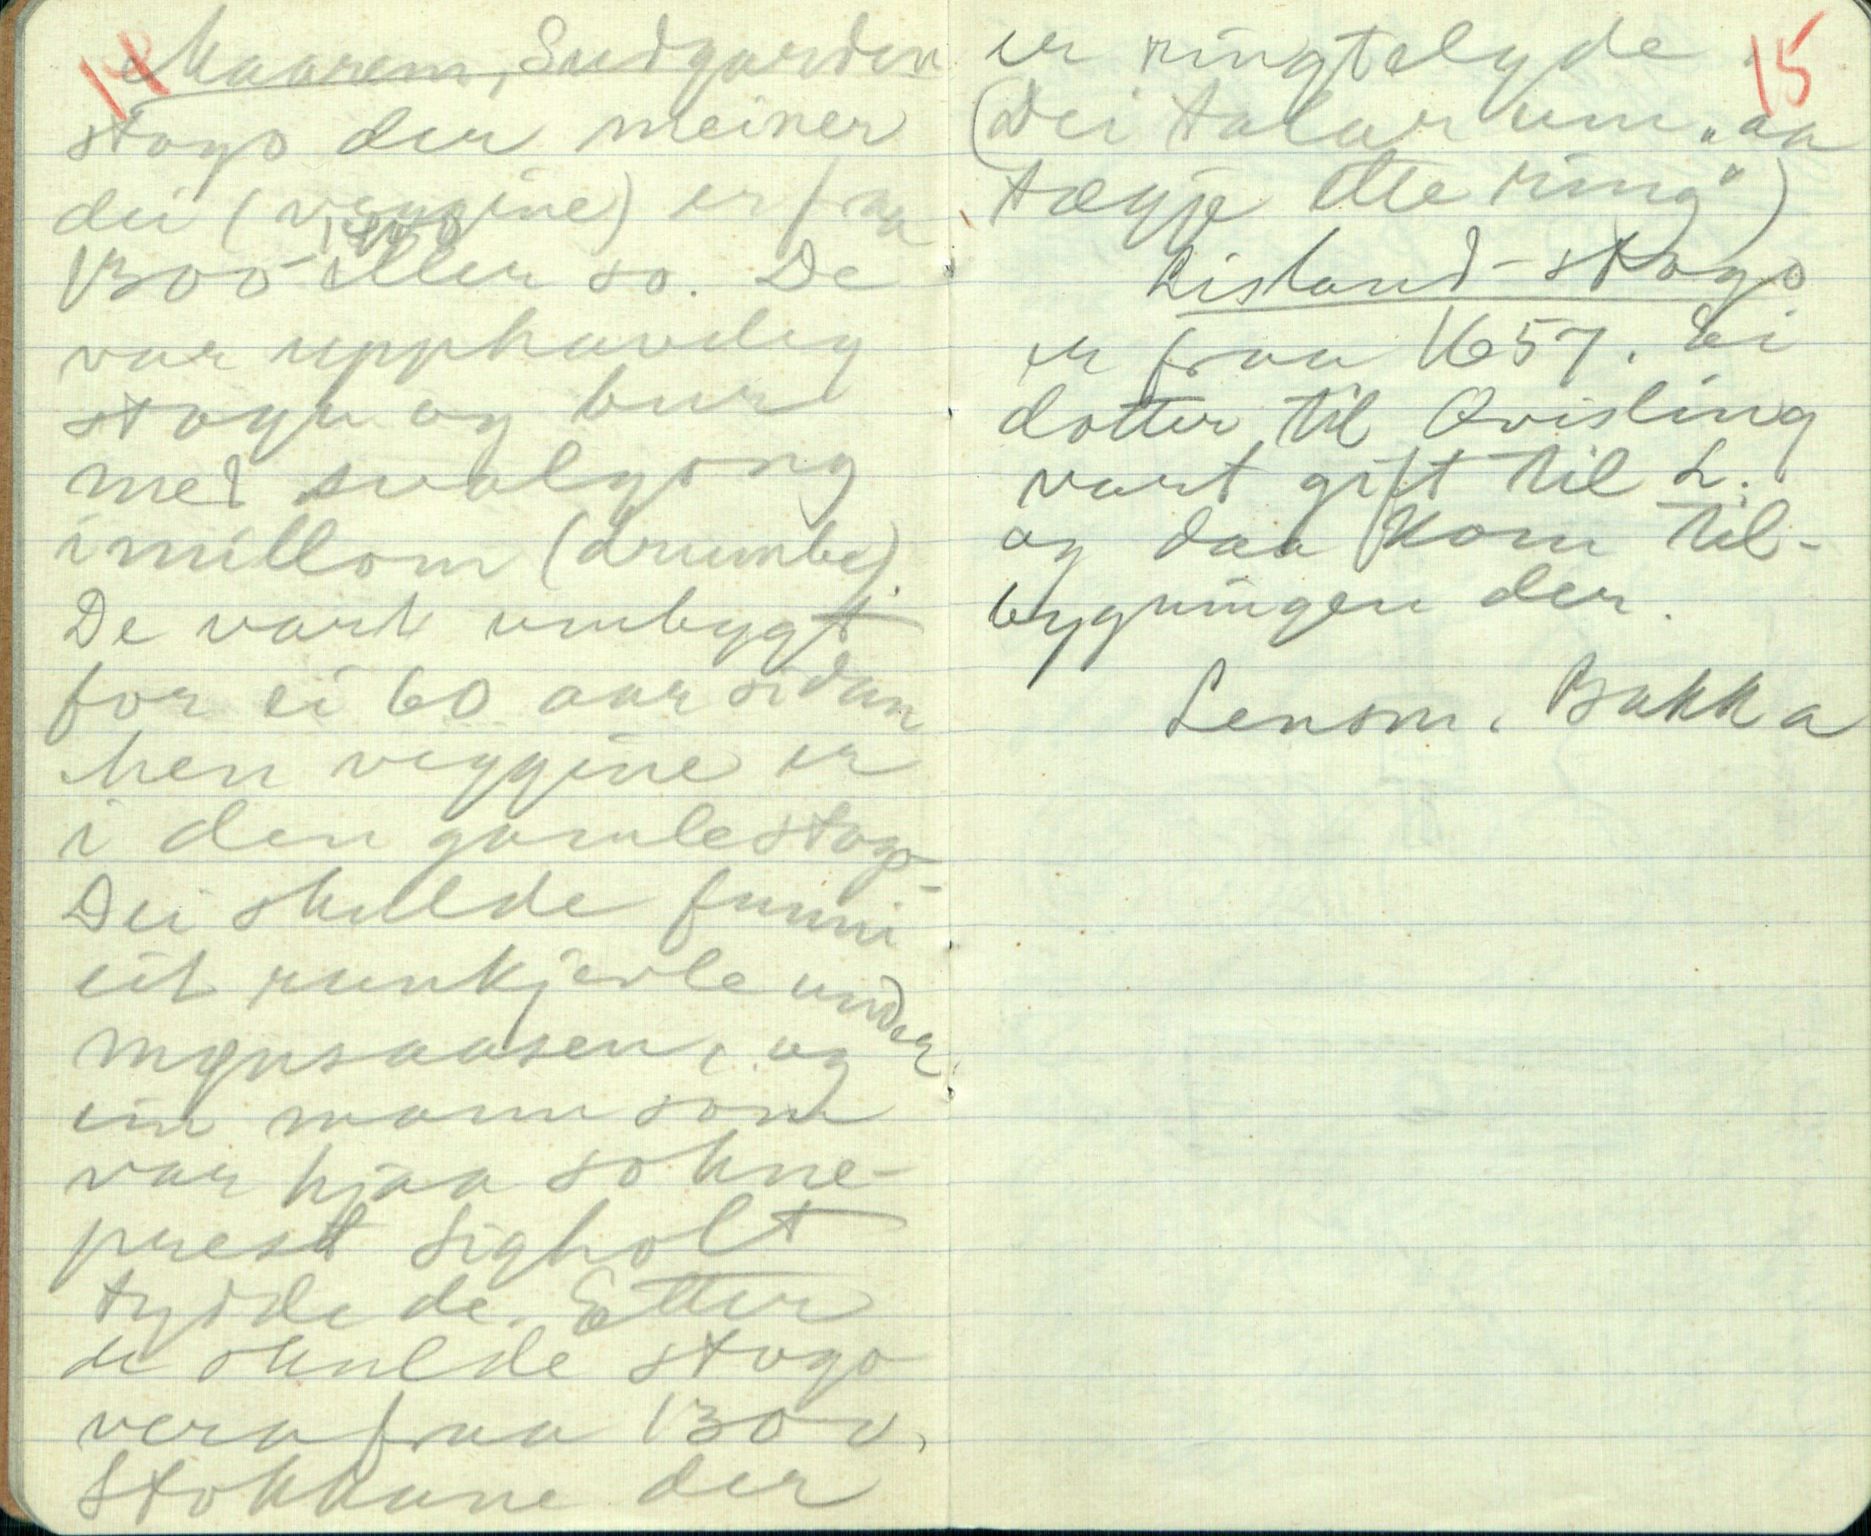 14
Maarem, Sudgarden
stogo der meiner
dei (veggine) er fraa
1300 eller so. De
var upphavdeg
stogu og bur
med svalgong
imillom (drumbe).
De vart umbygt
for ei 60 aar sidan
men veggine er
i den gamlestogo.
Dei skulde funni
eit runkjevle under
mønsaasen, og
ein mann som
var hjaa sokne-
prest Sigholt
tydde de. Etter
de skulde stogo
vera fraa 1300.
Stokkane der
15
er ringtelgde.
(Dei talar um "aa
tægje ette ring")
Lisland-stogo
er fraa 1657. Ei
dotter til Qvisling
vart gift til L.
og daa kom til-
bygningen der.
Lensm. Bakka